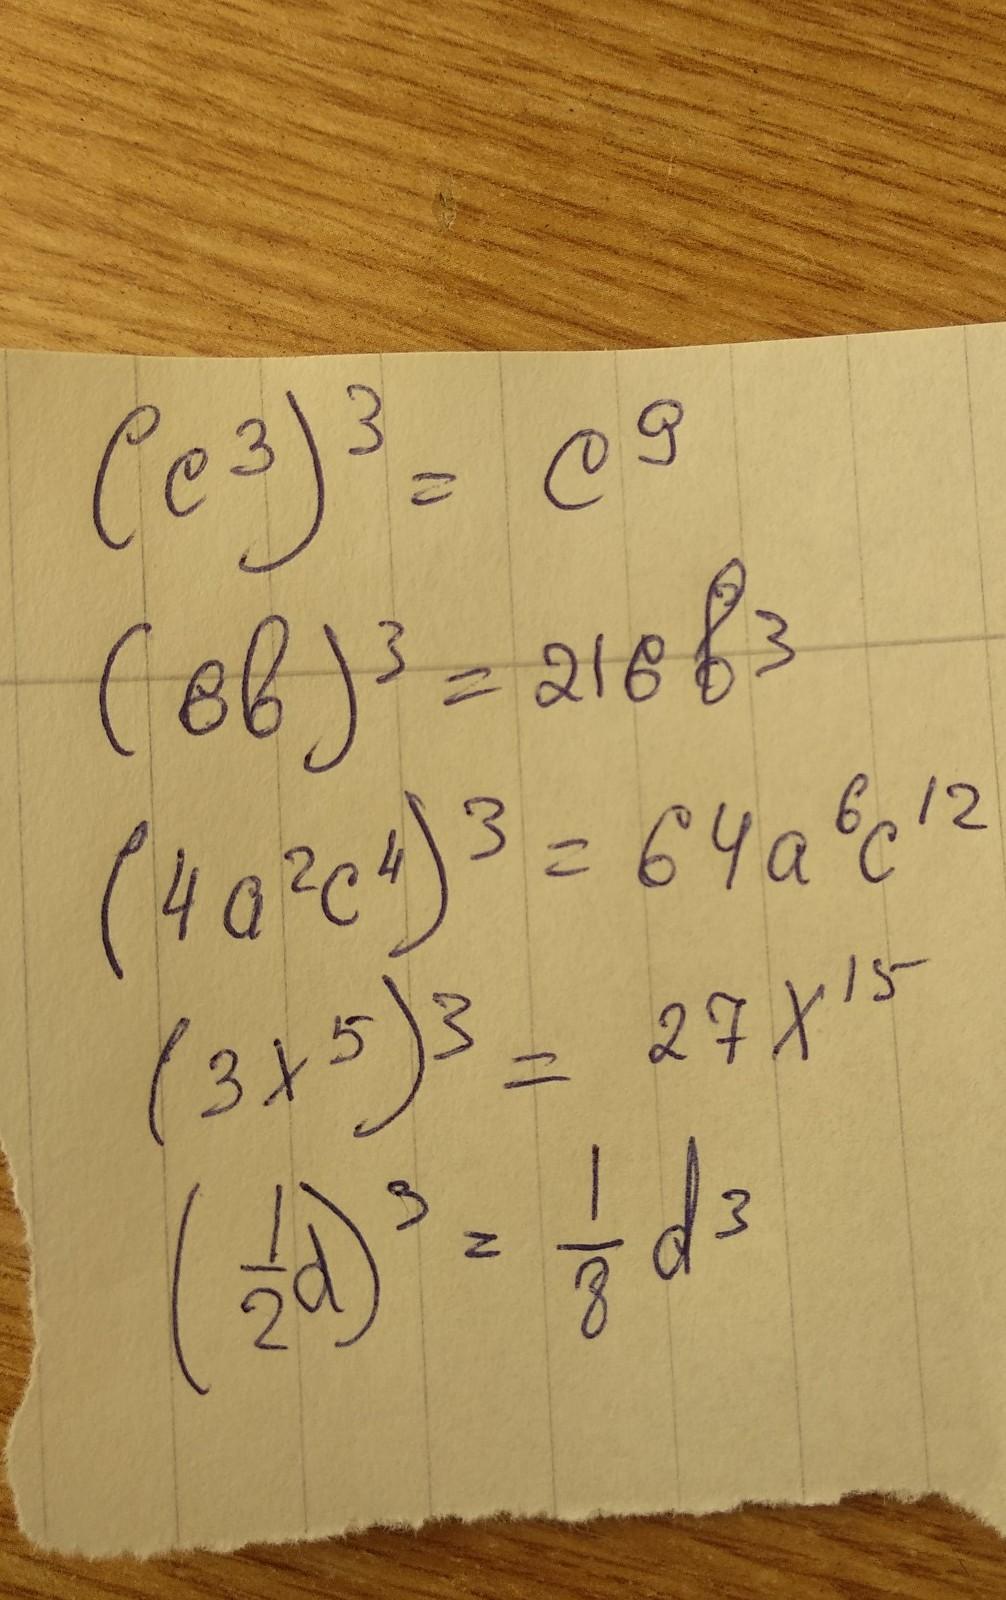 (c³)³ = c⁹
(6b)³ = 216b³
(4a²c⁴)³ = 64a⁶c¹²
(3x⁵)³ = 27x¹⁵
(1/2 d)³ = 1/8 d³